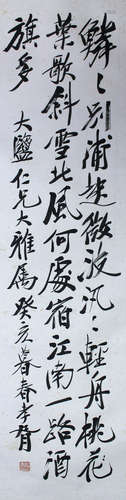 鱗〻別浦起微波汎〻輕舟桃花
葉歌斜雪北風何處宿江南一路酒
旗多 大鹽仁兄大雅屬 癸亥暮春孝胥